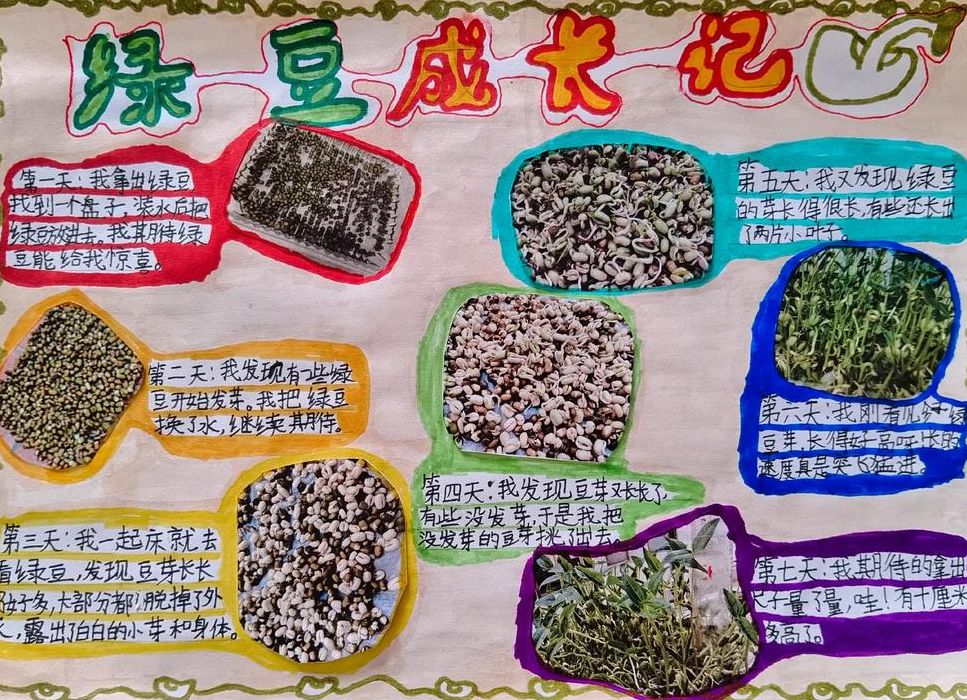 绿豆成长记
第一天：我拿出绿豆
找到一个盘子，装水后把
绿豆放进去。我期待绿
豆能给我惊喜。
第二天：我发现有一些绿
豆开始发芽。我把绿豆
换了水，继续期待。
第三天：我一起床就去
看绿豆，发现豆芽长长
好多，大部分都脱掉了外
，露出了白白的小芽和身体。
第四天：我发现豆芽又长长了，
有些没发芽，于是我把
没发芽的豆芽挑出去。
第五天：我又发现绿豆
的芽长得很长，有些还长出
了两片小叶子。
第六天：我刚看见绿
豆芽，长得好高呀！长的
速度真是突飞猛进。
第七天：我期待的拿出
尺子量了量，哇！有十厘米
多高了。